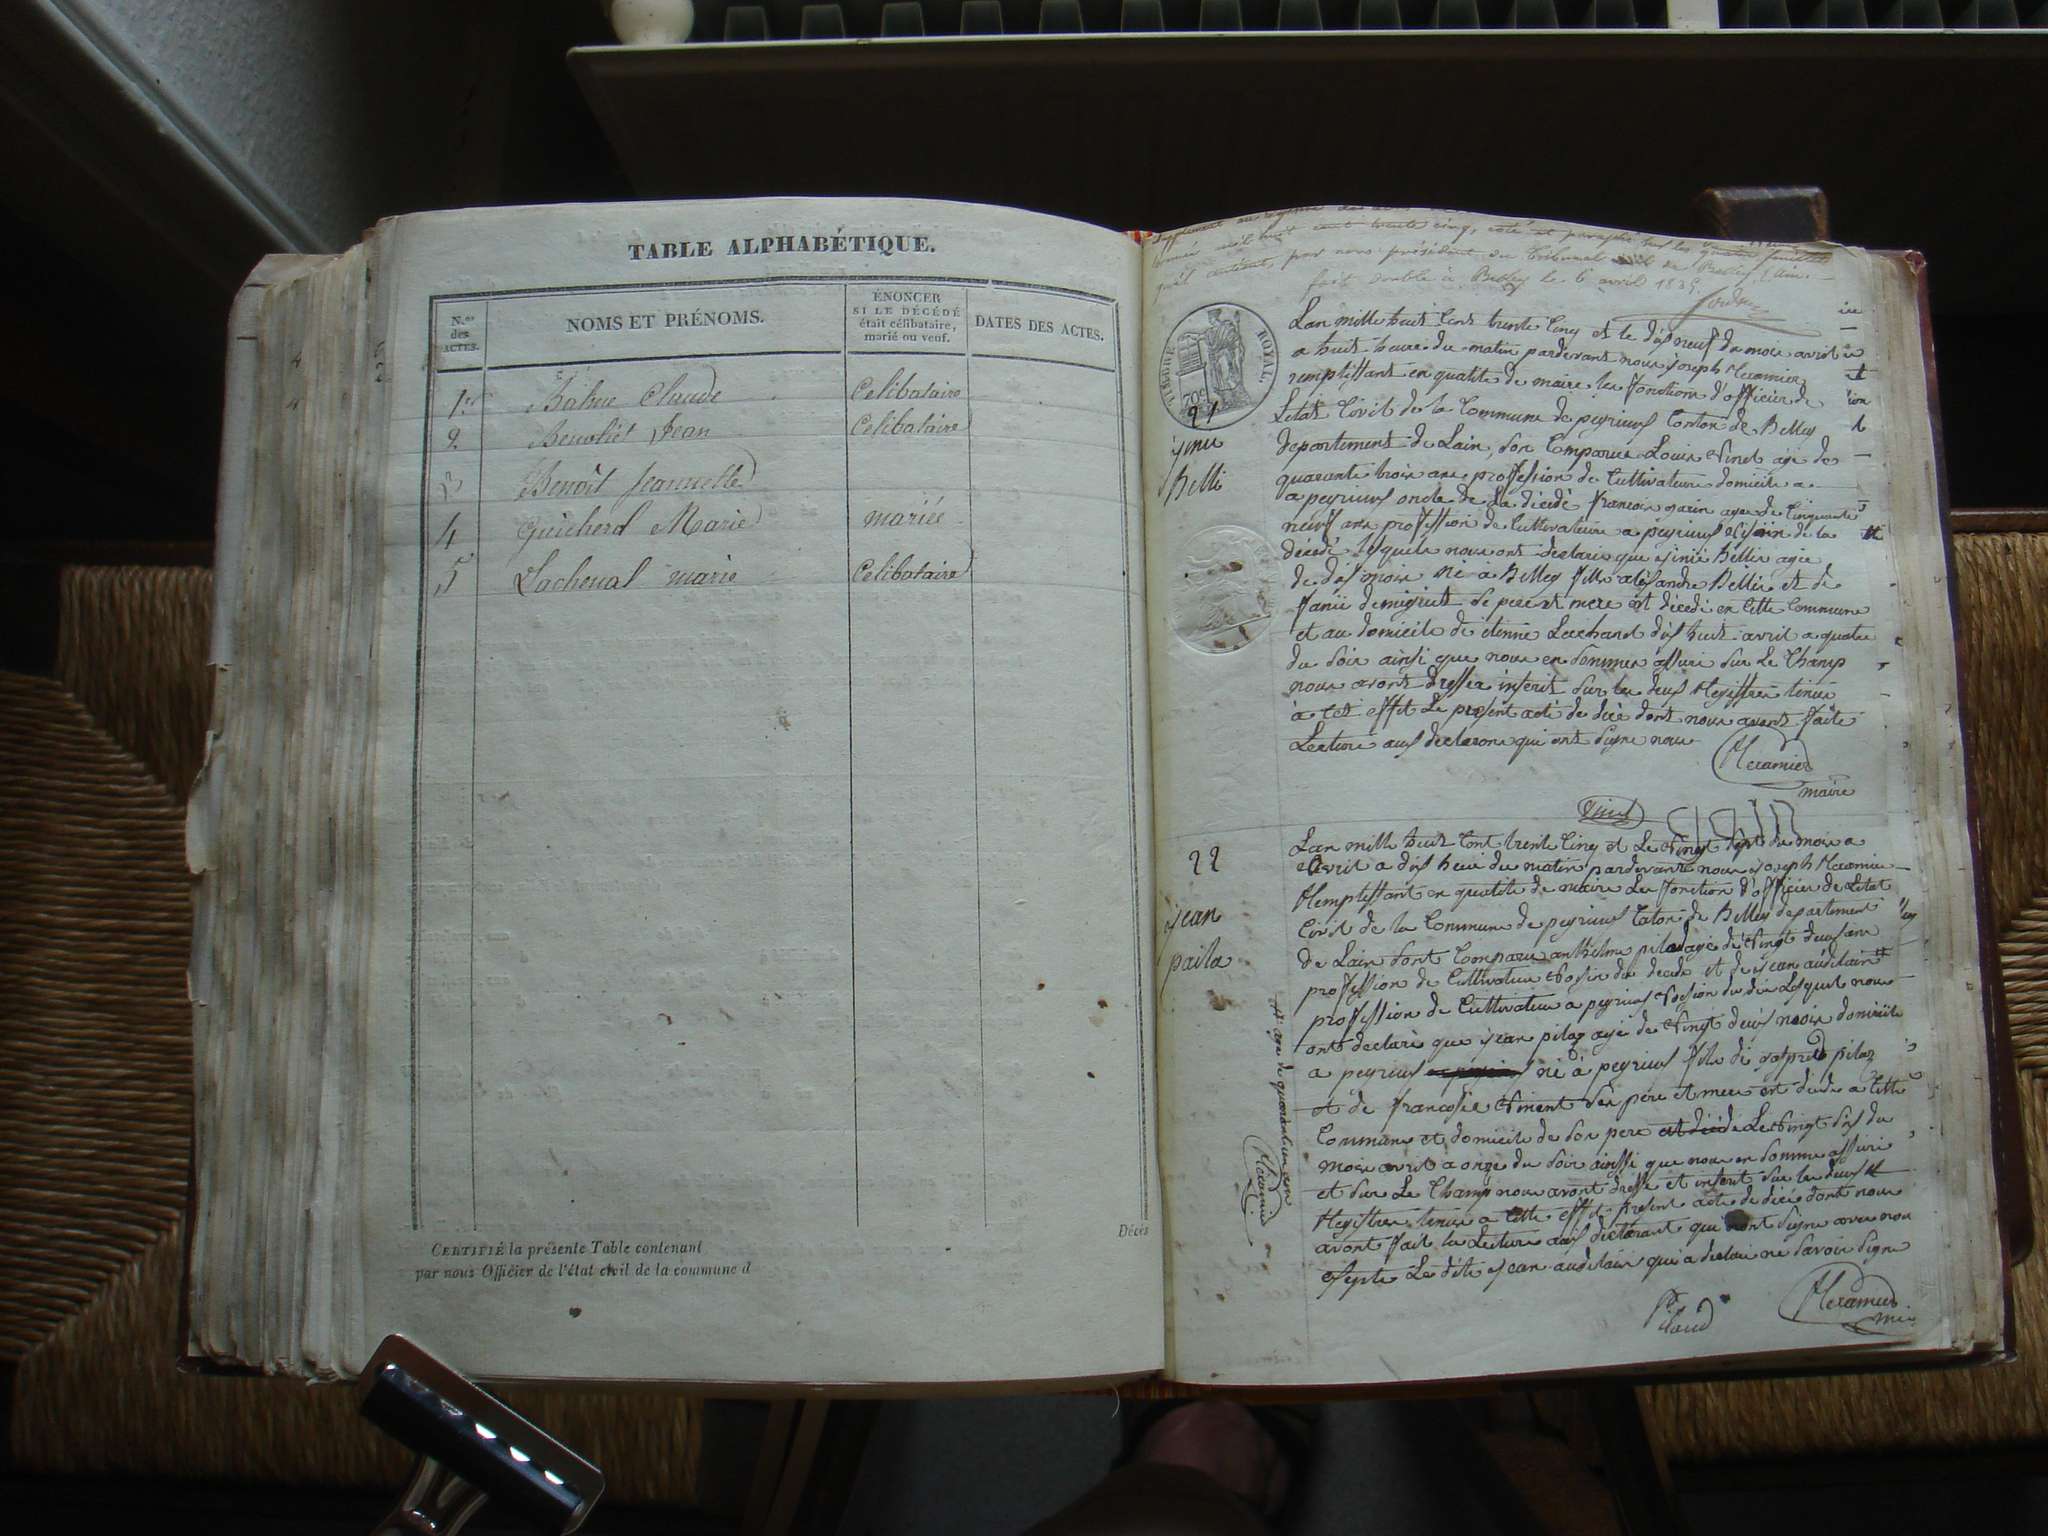 TABLE ALPHABÉTIQUE.
N.os des ACTES.
NOMS ET PRÉNOMS.
ÉNONCER SI LE DÉCÉDÉ était célibataire, marié ou veuf.
DATES DES ACTES.
1er Claude Celibataire
2 Benoîst Jean Celibataire
3 Benoît Jeannette
4 Guicherd Marie mariée
5 Lachenal marie Celibataire
Décès
CERTIFIÉ la présente Table contenant
par nous Officier de l'état civil de la commune d
Supplement au registre des
année mil huit cent trente cinq, coté et paraphé sur les feuillets
par nous président du tribunal civil de Belley, Ain
fait double à Belley le 6 avril 1835
TIMBRE ROYAL
70c
21
Belli
Lan mille huit Cent trente Cinq et le dix neuf du moix avril
a huit heure du matin pardevant nous joseph Meramier
remplissant en qualité de maire les fonctions d'officier de
Letat Civil de la Commune de peyrieux Canton de Belley
departement de Lain, son Comparus Louis Vinet agé de
quarante trois ans profession de Cultivateur domicile a
a peyrieux oncle de La décédé francois agée de Cinquante
neuf ans profession de Cultivateur a peyrieux voisin de la
décédé lesquels nous ont declaré que Bellis agée
de dix moix né à Belley fille alexandre Bellis et de
se pere et mere est décedé en Cette Commune
et au domicile de etienne Lachard dix huit avril a quatre
du soir ainsi que nous en sommes assuré sur Le Champ
nous avont dresser inscrit sur les deux Registres tenus
à Cet effet Le present acte de décé dont nous avons faite
Lecture aux declarons qui ont signe nous
Meramier
maire
Vinet
22
jean
paila
Lan mille huit Cent trente Cinq et Le vingt sept du moix a
avril a dix heure du matin pardevant nous joseph Meramier
Remplissant en qualité de maire Les fonction d'officier de Letat
Civil de la Commune de peyrieux Caton de Belley departement
de Lain sont Comparus anthelme pilaz agé de vingt deux ans
profession de Cultivateur vosin du decede et de jean audilain
profession de Cultivateur a peyrieux vosion du Lesquel nous
ont declaré que jean pilaz agé de vingt deux moix domicile
a peyrieux né à peyrieux fils de pilaz
et de françoise vincent ses pere et mere est decede a Cette
Commune et domicile de son pere et décédé Le vingt six du
moix avril a onze du soir ainssi que nous en somme assuré
et sur Le Champ nous avont dressé et inscrit sur les deux
Registres tenus a Cette effet present acte de décé dont nous
avont fait la Lecture aux declarant qui nont signe avec nou
Le dite jean audilain qui a declaré ne savoir signe
agé de quarante un ans
Meramier
Pilaud
Meramier